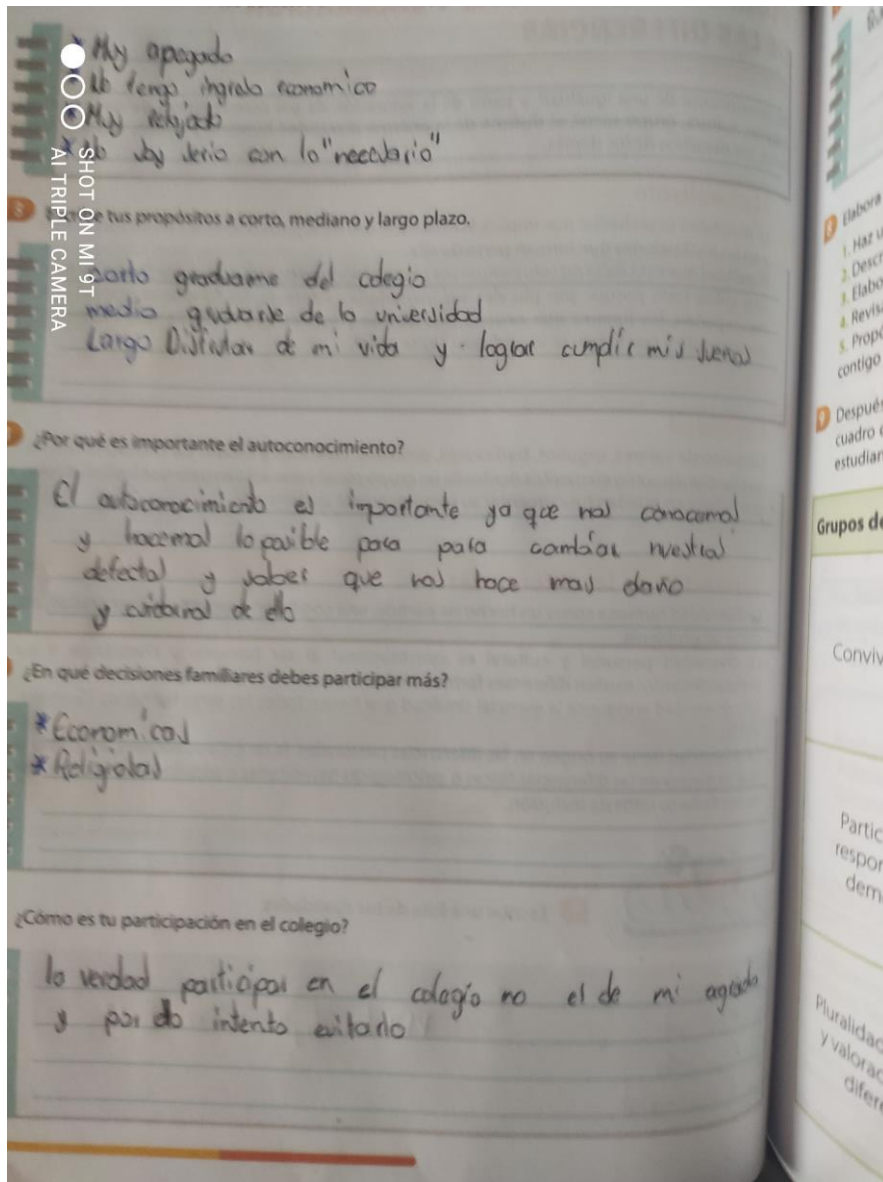 * Muy apegado
* No tengo ingreso economico
* Muy relajado
* No soy serio con lo "necesario"
SHOT ON MI 9T
AI TRIPLE CAMERA
5
tus propósitos a corto, mediano y largo plazo.
corto graduarme del colegio
medio graduarse de la universidad
Largo Disfrutar de mi vida y lograr cumplir mis sueños
¿Por qué es importante el autoconocimiento?
El autoconocimiento es importante ya que nos conocemos
y hacemos lo posible para para cambiar nuestros
defectos y saber que nos hace mas daño
y cuidarnos de ello
¿En qué decisiones familiares debes participar más?
* Economicas
* Religiosas
¿Cómo es tu participación en el colegio?
la verdad participar en el colegio no es de mi agrado
y por do intento evitarlo
8 Elabora
1. Haz u
2. Descr
3. Elabo
4. Revis
5. Propo
contigo
9 Despué
cuadro
estudian
Grupos de
Conviv
Partic
respon
dem
Pluralidad
y valorac
difere